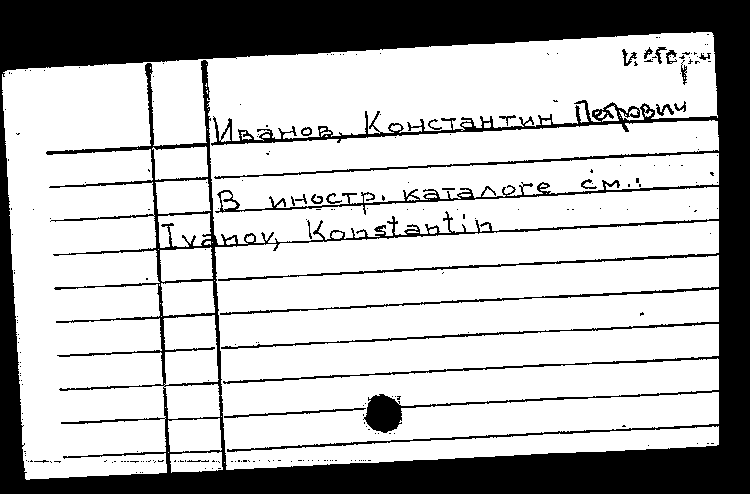 истор
Иванов, Константин Петрович
В иностр. каталоге см.:
Ivanov, Konstantin